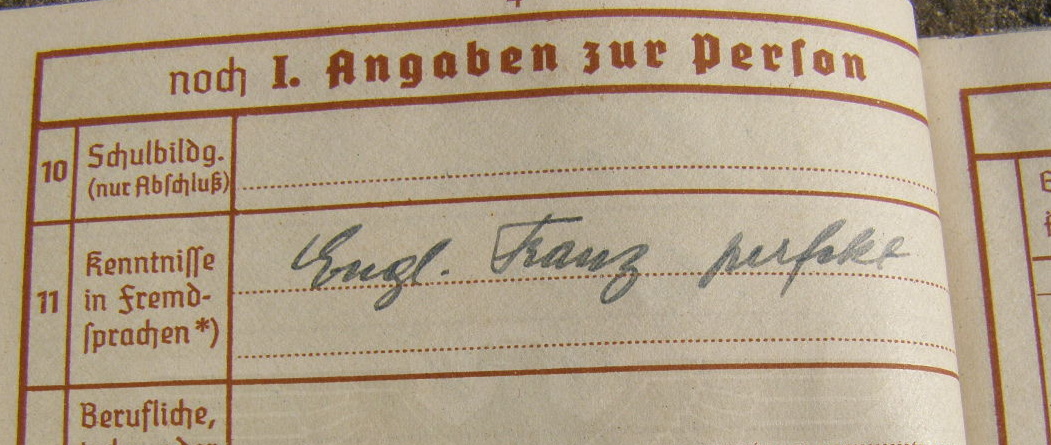 noch I. Angaben zur Person
10 Schulbildg.
(nur Abschluß)
11 Kenntnisse
in Fremd-
sprachen *)
Engl. Franz perfekt
Berufliche,